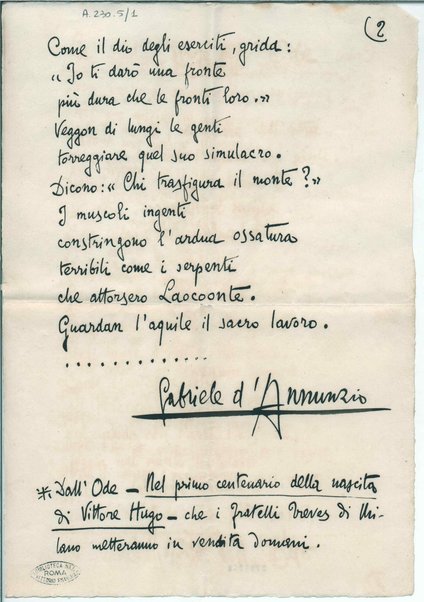 A.230.5/1
(2
Come il dio degli eserciti, grida:
"Io ti darò una fronte
più dura che le fronti loro."
Veggon di lungi le genti
torreggiare quel suo simulacro.
Dicono: "Chi trasfigura il monte?"
I muscoli ingenti
constringono l'ardua ossatura
terribili come i serpenti
che attorsero Laocoonte.
Guardan l'aquile il sacro lavoro.
. . . . . . . . . . . . .
Gabriele d'Annunzio
* Dall'Ode – Nel primo centenario della nascita
di Vittore Hugo – che i fratelli Treves di Mi-
lano metteranno in vendita domani.
BIBLIOTECA NAZ.
ROMA
VITTORIO EMANUELE